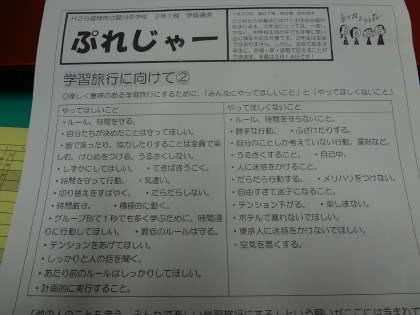 ぷれじゃー
学習旅行に向けて②
◎楽しく意味のある学習旅行にするために、「みんなにやってほしいこと」と「やってほしくないこと」
やってほしいこと
・ルール、時間を守る。
・自分たちが決めたことは守ってほしい。
・皆で笑ったり、協力したりすることは全員で楽しむ。けじめをつける。うるさくしない。
・しずかにしてほしい。　・てきぱきうごく。
・時間を守って行動。　・気遣い。
・切り替えをすばやく。　・だらだらしない。
・時間厳守。　・積極的に動く。
・グループ別で１秒でも多く学ぶために、時間通りに行動してほしい。　・最低のルールは守る。
・テンションをあげてほしい。
・しっかりと人の話を聞く。
・あたり前のルールはしっかりしてほしい。
・計画的に実行すること。
やってほしくないこと
・ルール、時間を守らないこと。
・勝手な行動。　・ふざけたりする。
・自分のことしか考えていない行動、言動など。
・うるさくすること。　・自己中。
・人に迷惑をかけること。
・だらだら行動する。　・メリハリをつけない。
・自由すぎて迷子になること。
・テンション下がる。　・楽しまない。
・ホテルで暴れないでほしい。
・東京人に迷惑をかけないでほしい。
・空気を悪くする。